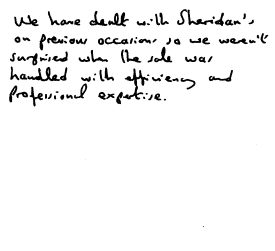 We have dealt with Sheridan's
on previous occasions so we weren't
surprised when the sale was
handled with efficiency and
Professional expertise.